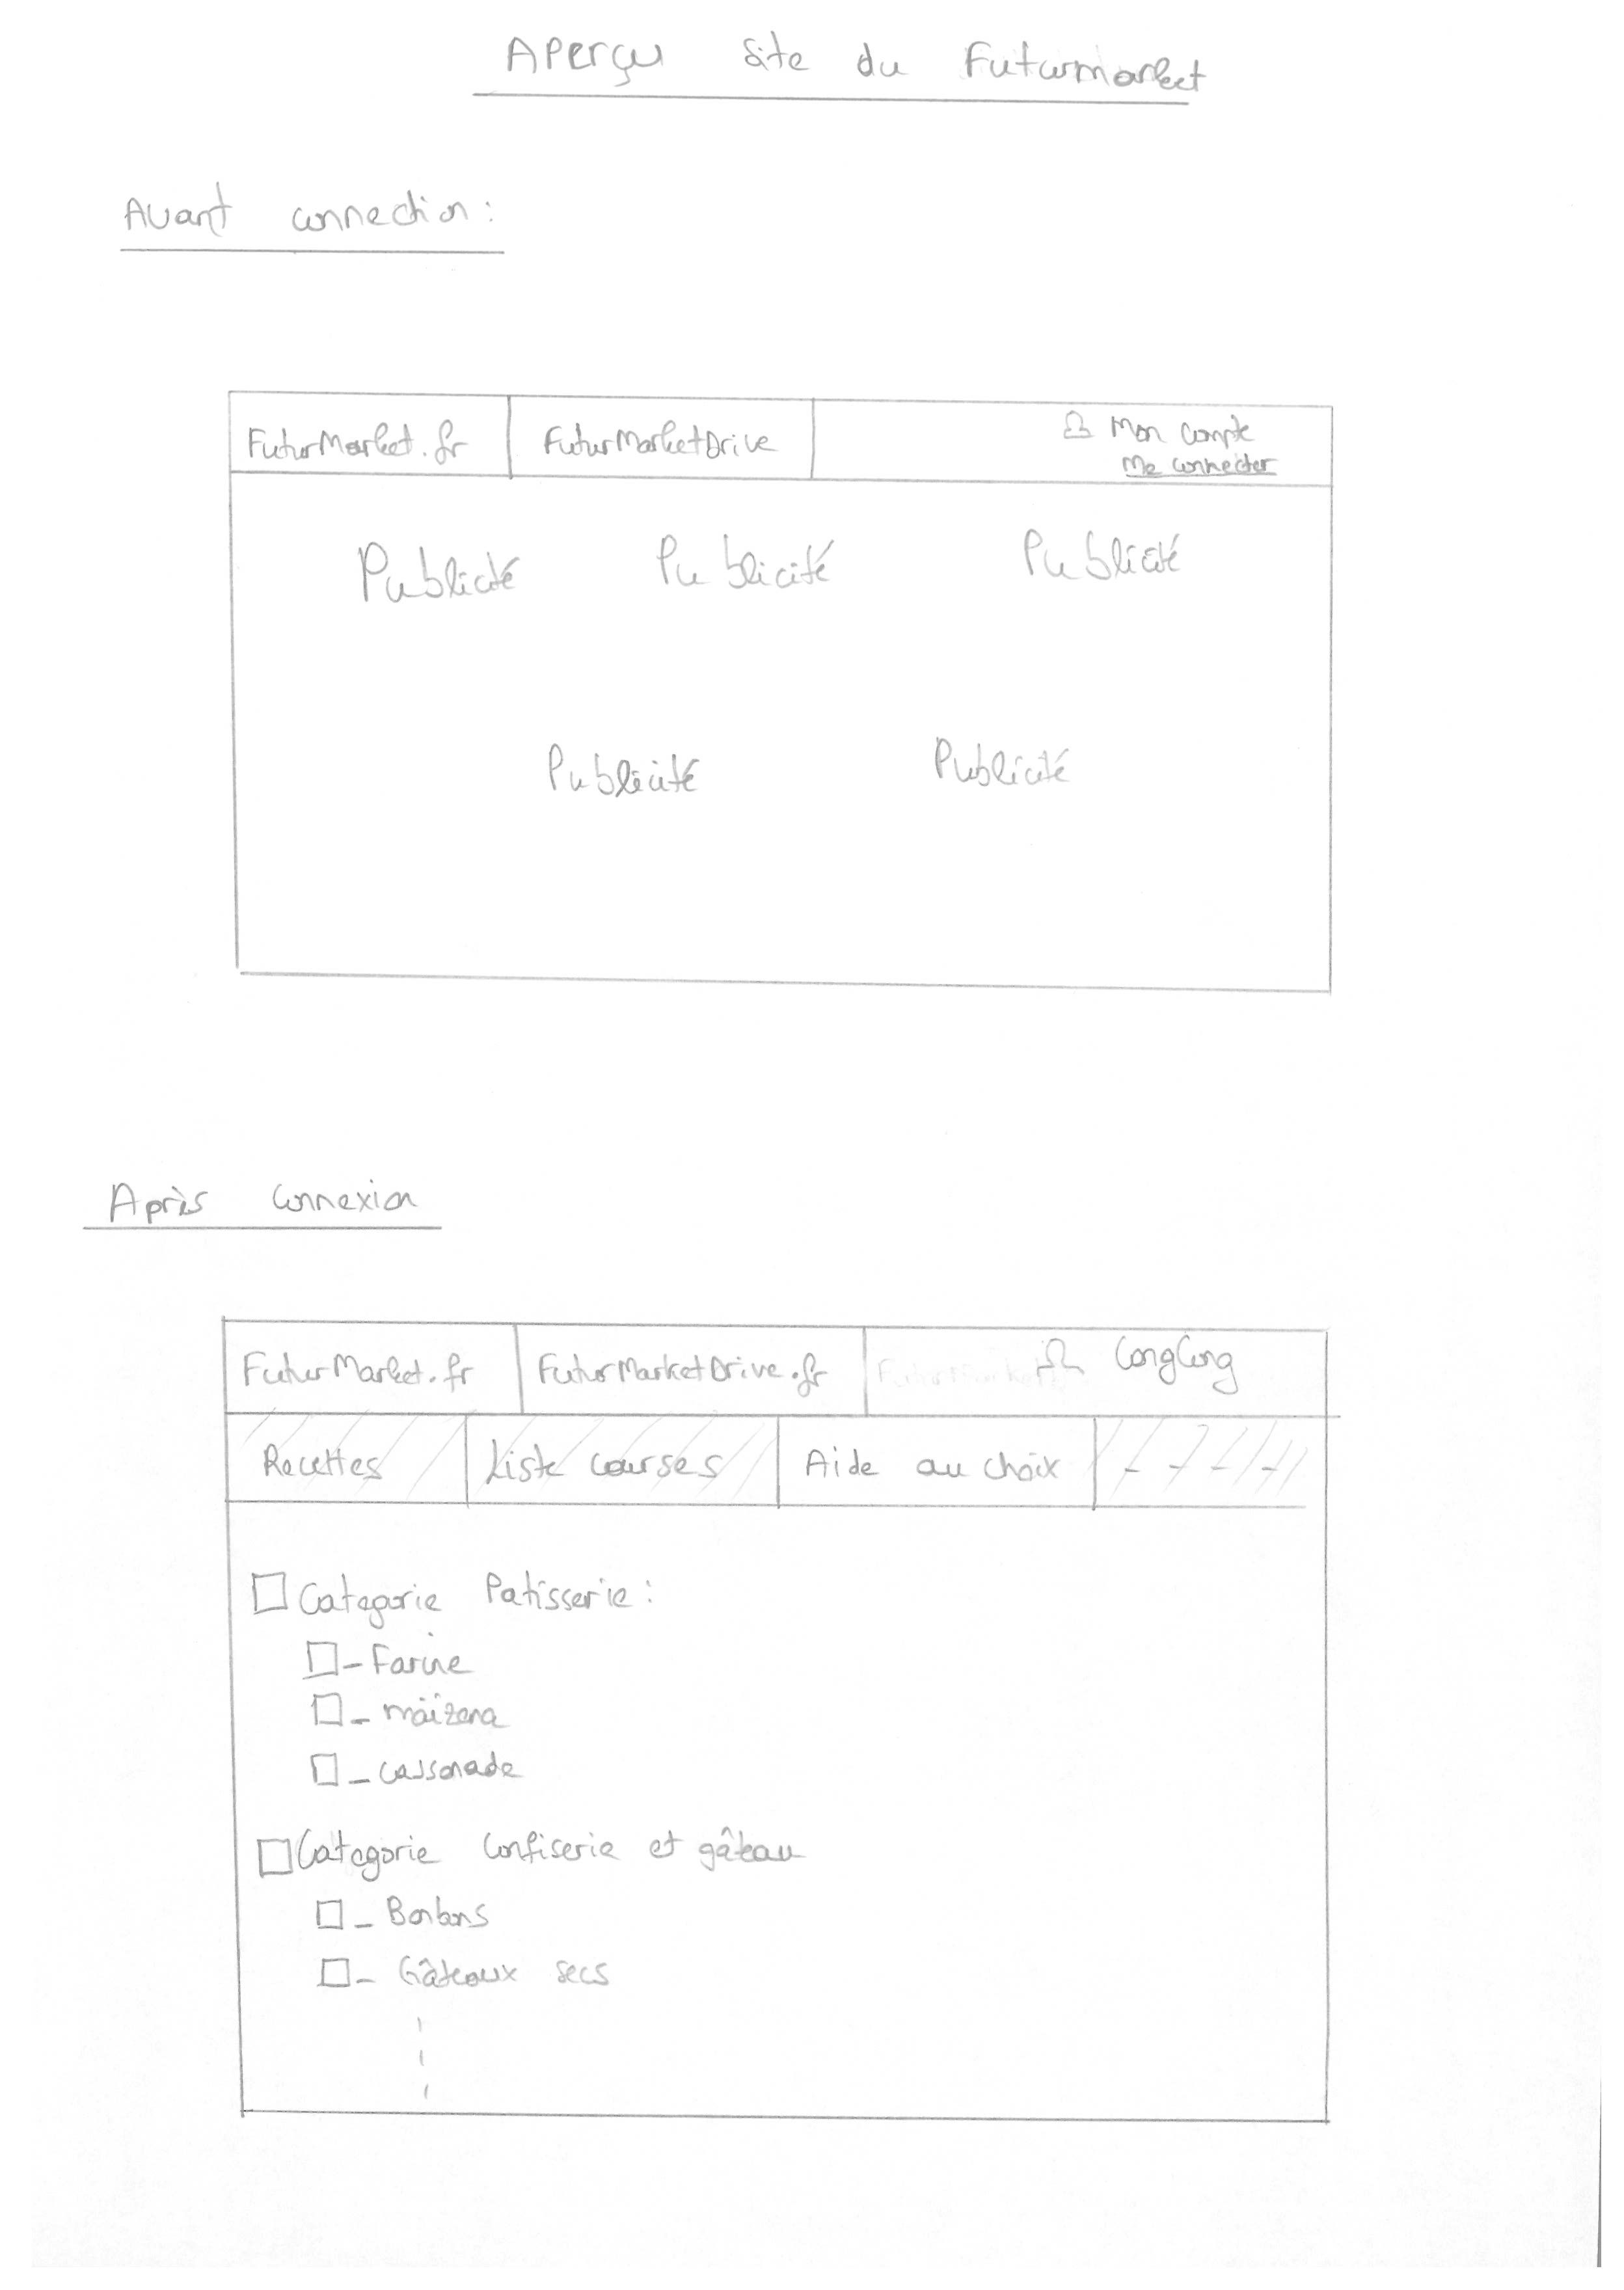 Aperçu Site du Futurmarket
Avant connection :
FuturMarket.fr FuturMarketDrive Mon compte
Me connecter
Publicité Publicité Publicité
Publicité Publicité
Après connexion
FuturMarket.fr FuturMarketDrive.fr CongCong
Recettes Liste courses Aide au choix
Categorie Patisserie :
- Farine
- maïzena
- cassonade
Categorie Confiserie et gâteau
- Bonbons
- Gâteaux secs